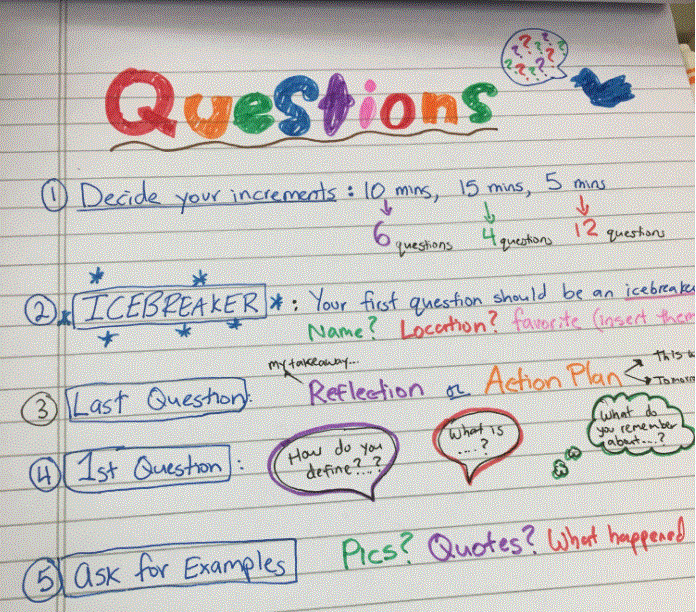 ? ? ? ? ? ? ? ? ?
Questions
① Decide your increments: 10 mins, 15 mins, 5 mins
6 questions 4 questions 12 questions
② * ICEBREAKER * : Your first question should be an icebreaker
Name? Location? favorite (insert them
my takeaway...
This w
③ Last Question: Reflection or Action Plan
Tomorr
④ 1st Question: How do you define?...?
What is ....?
What do you remember about....?
⑤ ask for Examples Pics? Quotes? What happened